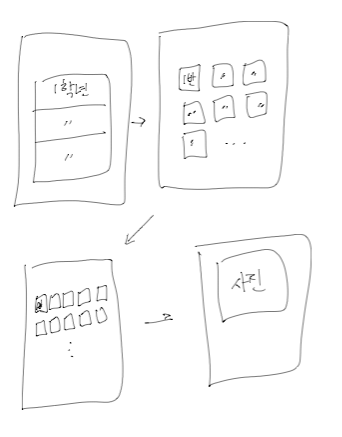 1학년
"
"
1반
...
사진